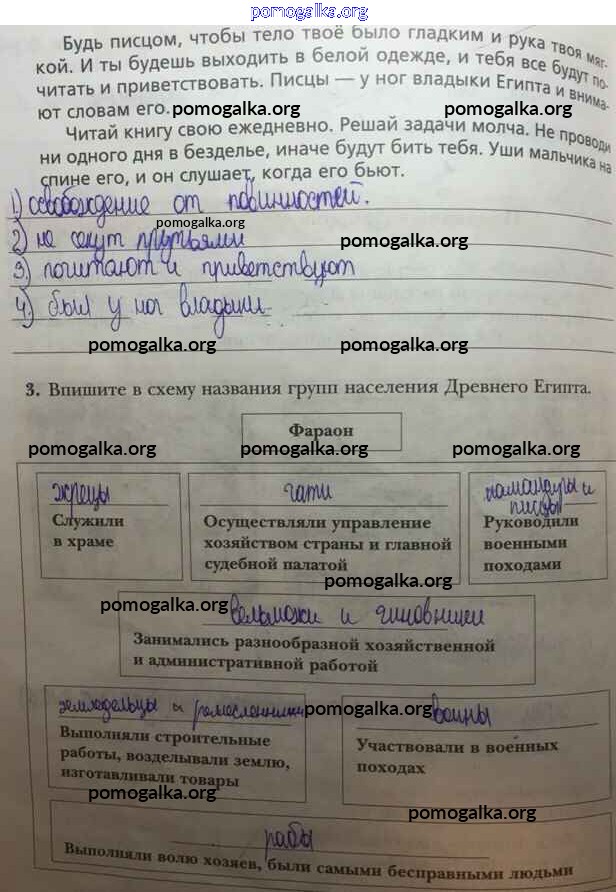 pomogalka.org
Будь писцом, чтобы тело твоё было гладким и рука твоя мяг-
кой. И ты будешь выходить в белой одежде, и тебя все будут по-
читать и приветствовать. Писцы — у ног владыки Египта и внима-
ют словам его. pomogalka.org pomogalka.org
Читай книгу свою ежедневно. Решай задачи молча. Не проводи
ни одного дня в безделье, иначе будут бить тебя. Уши мальчика на
спине его, и он слушает, когда его бьют.
1) освобождение от повинностей.
pomogalka.org
2) не секут прутьями pomogalka.org
3) почитают и приветствуют
4) был у ног владыки
pomogalka.org pomogalka.org
3. Впишите в схему названия групп населения Древнего Египта.
Фараон
pomogalka.org pomogalka.org
жрецы
Служили
в храме
чати
Осуществляли управление
хозяйством страны и главной
судебной палатой
командиры и
писцы
Руководили
военными
походами
pomogalka.org
pomogalka.org
вельможи и чиновники
Занимались разнообразной хозяйственной
и административной работой
земледельцы и ремесленники
Выполняли строительные
работы, возделывали землю,
изготавливали товары
pomogalka.org
воины
Участвовали в военных
походах
pomogalka.org
pomogalka.org
рабы
Выполняли волю хозяев, были самыми бесправными людьми